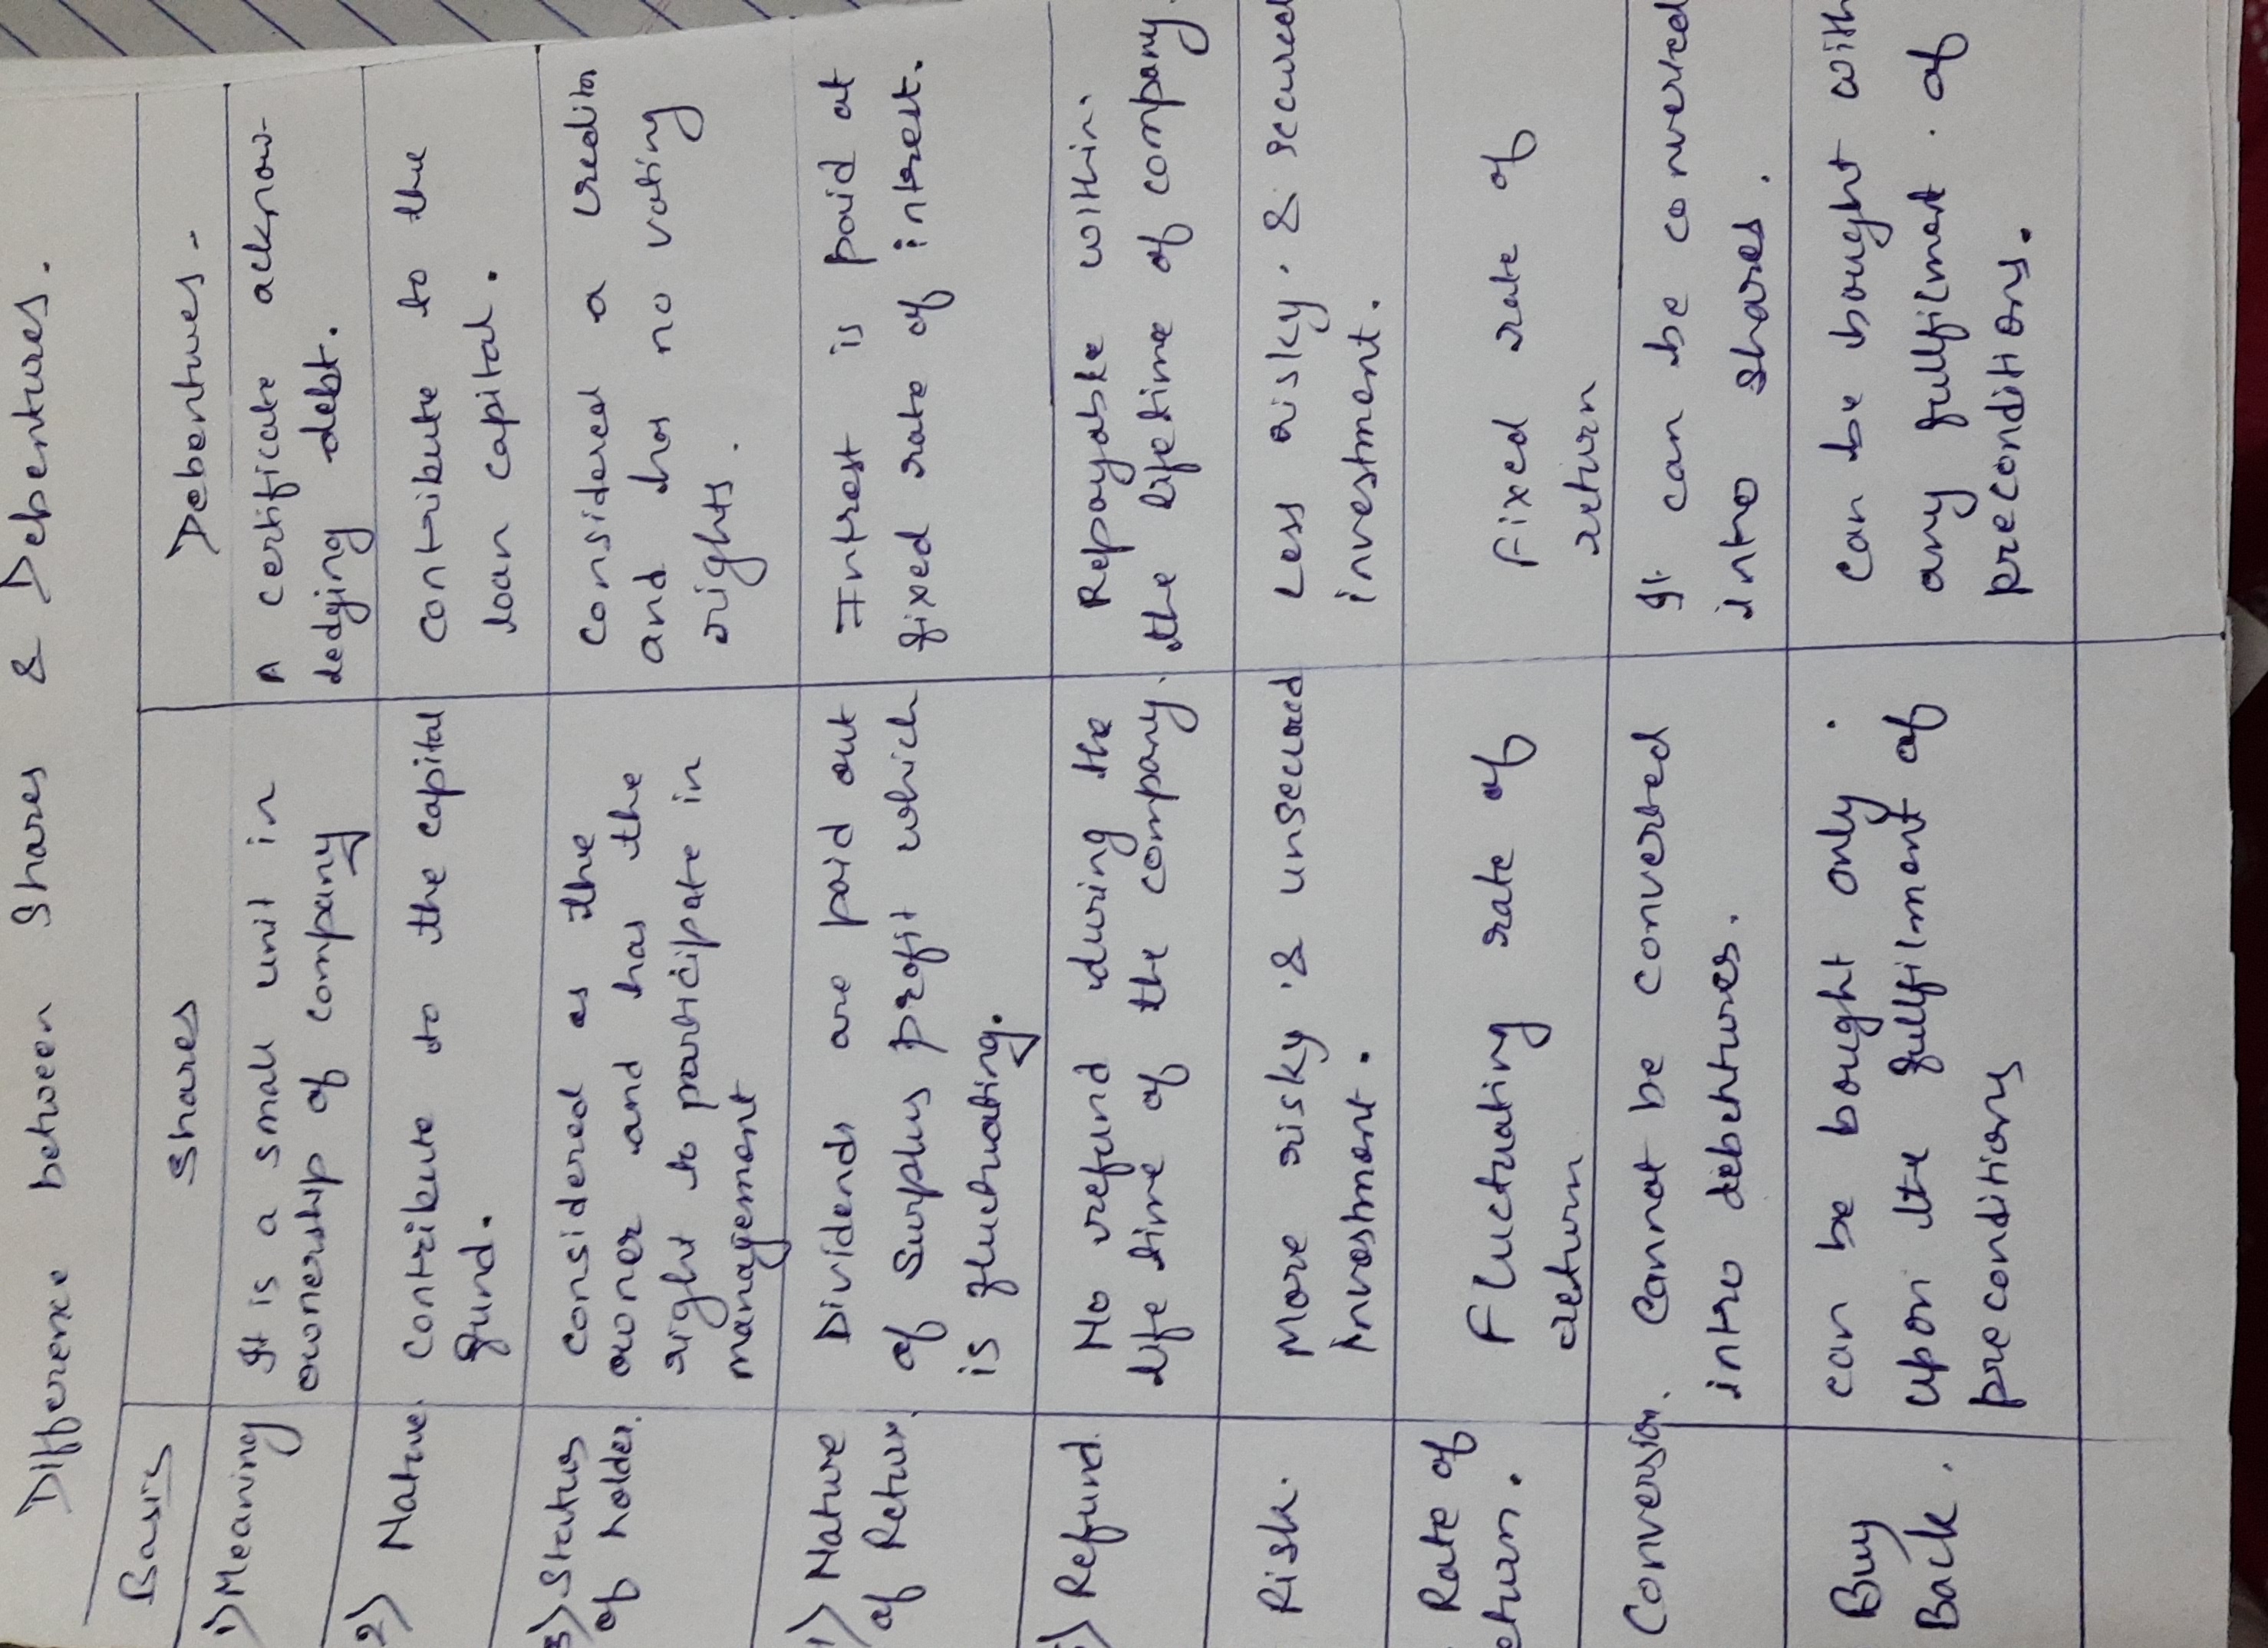 Difference between Shares & Debentures.
Basis Shares Debentures.
1) Meaning It is a small unit in A certificate acknow-
ownership of company dedging debt.
2) Nature. Contribute to the capital contribute to the
fund. loan capital.
3) Status considered as the considered a creditor
of holder. owner and has the and has no voting
right to participate in rights.
management
Nature Dividends are paid out Intrest is paid at
of Return. of Surplus profit which fixed rate of intrest.
is fluctuating.
Refund. No refund during the Repayable within.
life time of the company. the lifetime of company.
Risk. More risky & unsecured Less risky. & secured
investment. investment.
Rate of Fluctuating rate of Fixed rate of
eturn. return return
Conversion. Cannot be converted It can be converted
into debentures. into shares.
Buy can be bought only. Can be bought with
Back. upon the fullfilment of any fullfilment. of
preconditions preconditions.